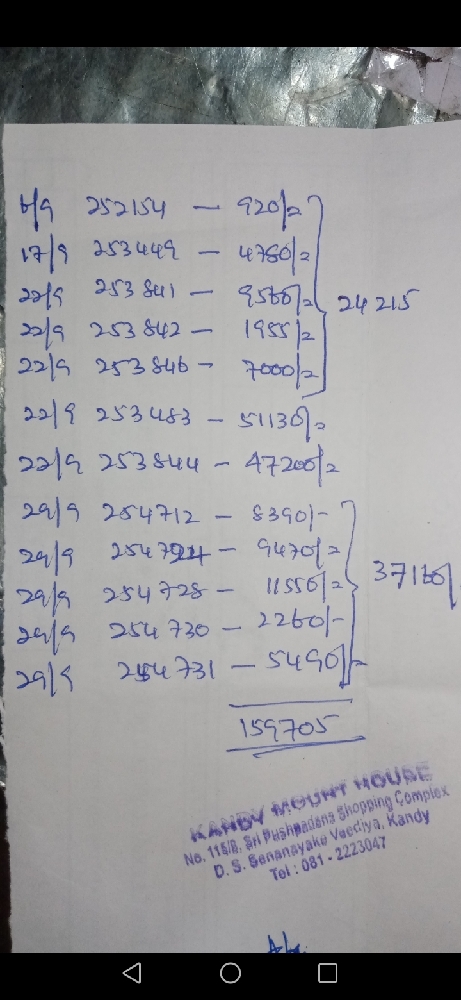 6/9 252154 — 920/=
17/9 253449 — 4780/=
22/9 253841 — 9560/=
22/9 253842 — 1955/=
22/9 253846 — 7000/=
24215
22/9 253483 — 51130/=
22/9 253844 — 47200/=
29/9 254712 — 8390/-
29/9 254724 — 9470/=
29/9 254728 — 11550/=
29/9 254730 — 2260/-
29/9 254731 — 5490/=
37160/
159705
KANDY MOUNT HOUSE
No. 115/B, Sri Pushpadana Shopping Complex
D. S. Senanayake Veediya, Kandy
Tel : 081 - 2223047